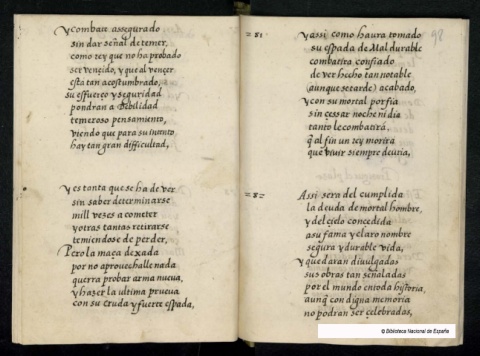 y combate assegurado
sin dar señal de temer,
como rey que no ha probado
ser vençido, y que al vençer
esta tan acostumbrado,
su esfuerço y seguridad
pondran a debilidad
temeroso pensamiento,
viendo que para su intento
hay tan gran difficultad,
y es tanta que se ha de ver
sin saber determinarse
mill vezes a cometer
y otras tantas retirarse
temiendose de perder,
Pero la maça dexada
por no aprouechalle nada
querra probar arma nueua,
y hazer la ultima prueua
con su cruda y fuerte espada,
92
= 81
y assi como haura tomado
su espada de Mal durable
combatira confiado
de ver hecho tan notable
(aunque se tarde) acabado,
y con su mortal porfia
sin cessar noche ni dia
tanto le combatirá,
q̃ al fin un rey morira
que viuir siempre deuria,
= 82
Assi sera del cumplida
la deuda de mortal hombre,
y del çielo concedida
a su fama y claro nombre
segura y durable vida,
y quedaran diuulgadas
sus obras tan señaladas
por el mundo en toda hystoria,
aunq̃ con digna memoria
no podran ser celebradas,
© Biblioteca Nacional de España